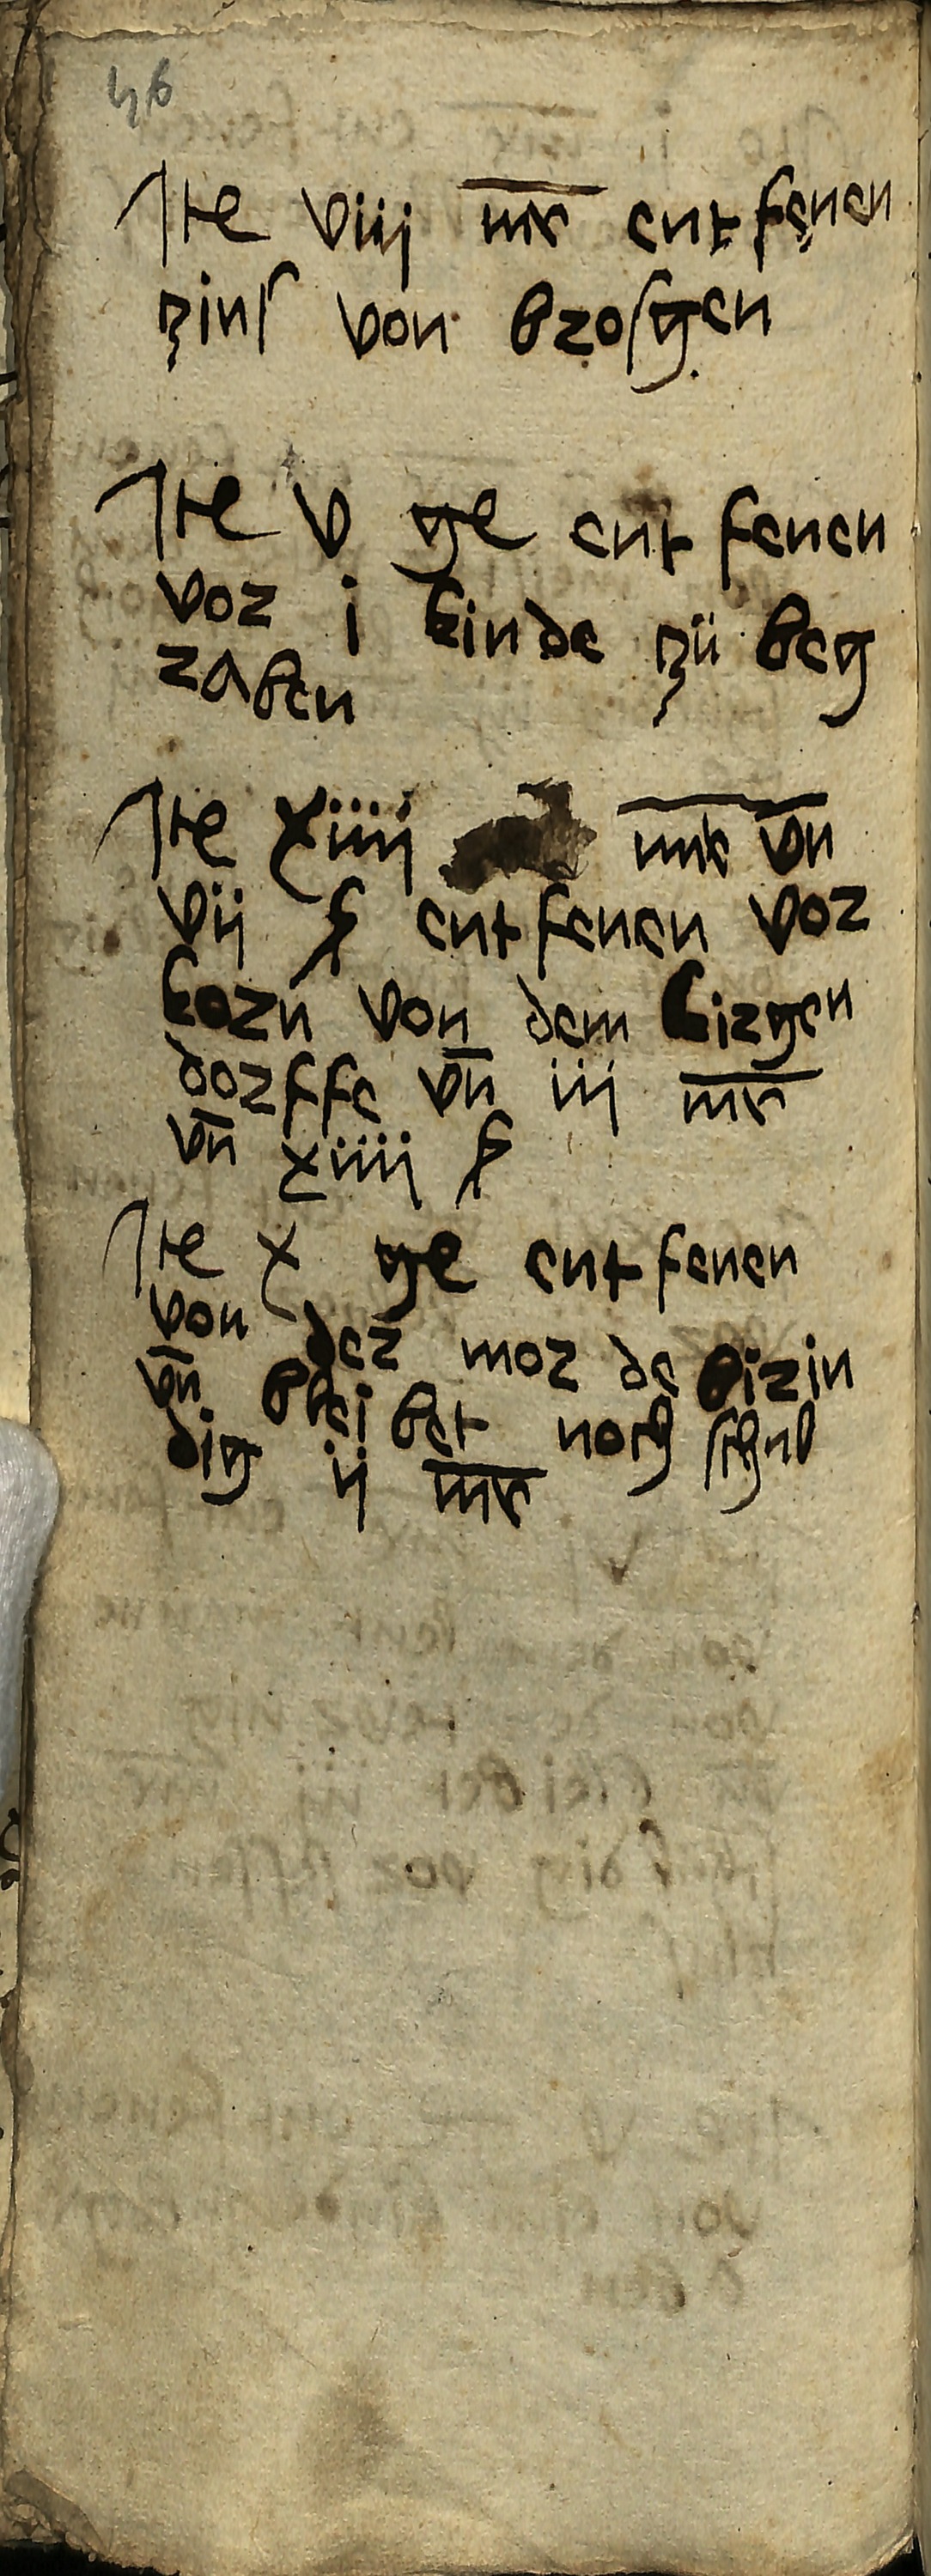 46
Ite viij mr entfenen
zins von brosgen
Ite v ge ent fenen
vor j kinde zü beg
raben
Ite xiiij mr vn
vij ß entfenen vor
korn von dem kirgen
dorffe vn iij mr
vn xiiij ß
Ite x ge ent fenen
von der mor de birin
vn blei bet noch schul
dig ij mr